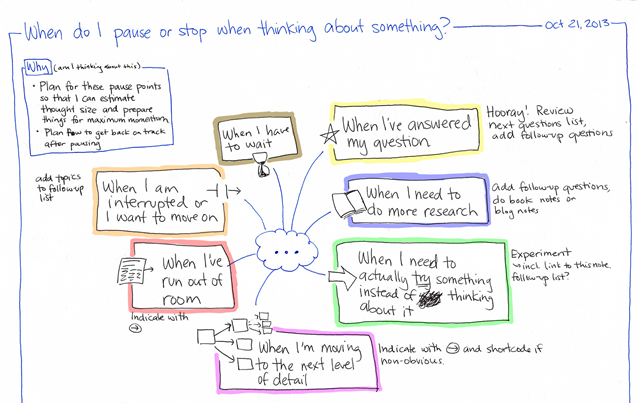 When do I pause or stop when thinking about something?
Oct 21, 2013
Why (am I thinking about this)
• Plan for these pause points
so that I can estimate
thought size and prepare
things for maximum momentum
• Plan how to get back on track
after pausing
When I have
to wait
When I've answered
my question
Hooray! Review
next questions list,
add follow-up questions
add topics
to follow-up
list
When I am
interrupted or
I want to move on
When I need to
do more research
Add follow-up questions,
do book notes or
blog notes
When I've
run out of
room
Indicate with
When I need to
actually try something
instead of thinking
about it
Experiment
incl. link to this note.
follow-up list?
When I'm moving
to the next level
of detail
Indicate with → and shortcode if
non-obvious.